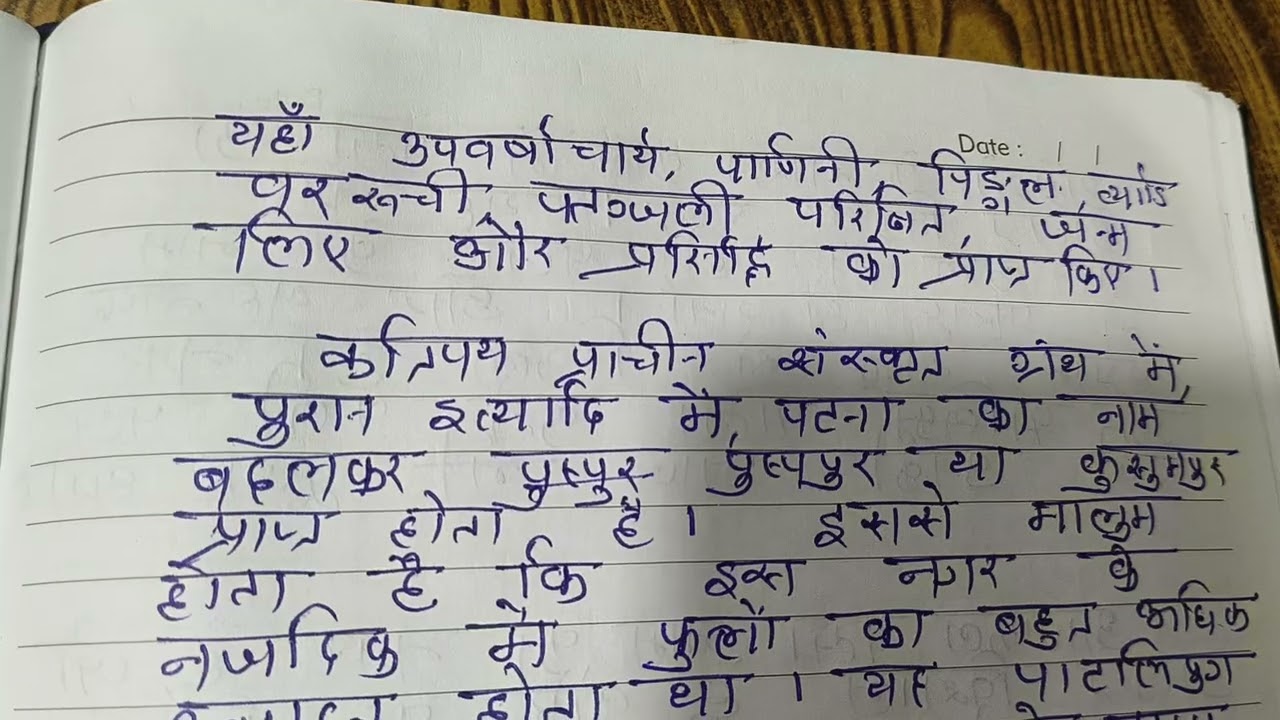 Date :
यहाँ उपवर्षाचार्य, पाणिनी, पिङ्गल, व्याडि
वररूची, पतञ्जली परिक्षित, जन्म
लिए और प्रसिद्धि को प्राप्त किए।
कतिपय प्राचीन संस्कृत ग्रंथ में,
पुरान इत्यादि में, पटना का नाम
बदलकर पुष्पुर पुष्पपुर या कुसुमपुर
प्राप्त होता है। इससे मालुम
होता है कि इस नगर के
नजदिक में फुलों का बहुत अधिक
होता था। यह पाटलिपुग